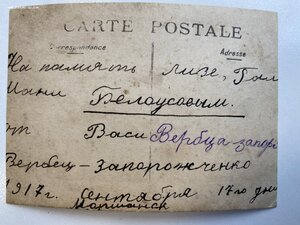 CARTE POSTALE
Correspondance Adresse
На память Лизе, Гал
Мани Белоусовым.
от Васи Вербца-запор
Вербец – Запорожченко
1917 г. Сентября 17го дня
Моршанск